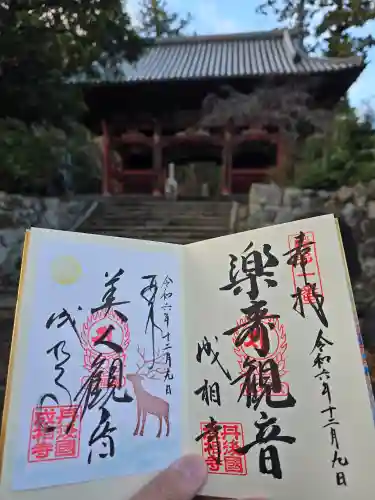 奉拝
令和六年十二月九日
楽寿観音
成相寺
丹後国
成相寺
令和六年十二月九日
美人観音
丹後国
成相寺